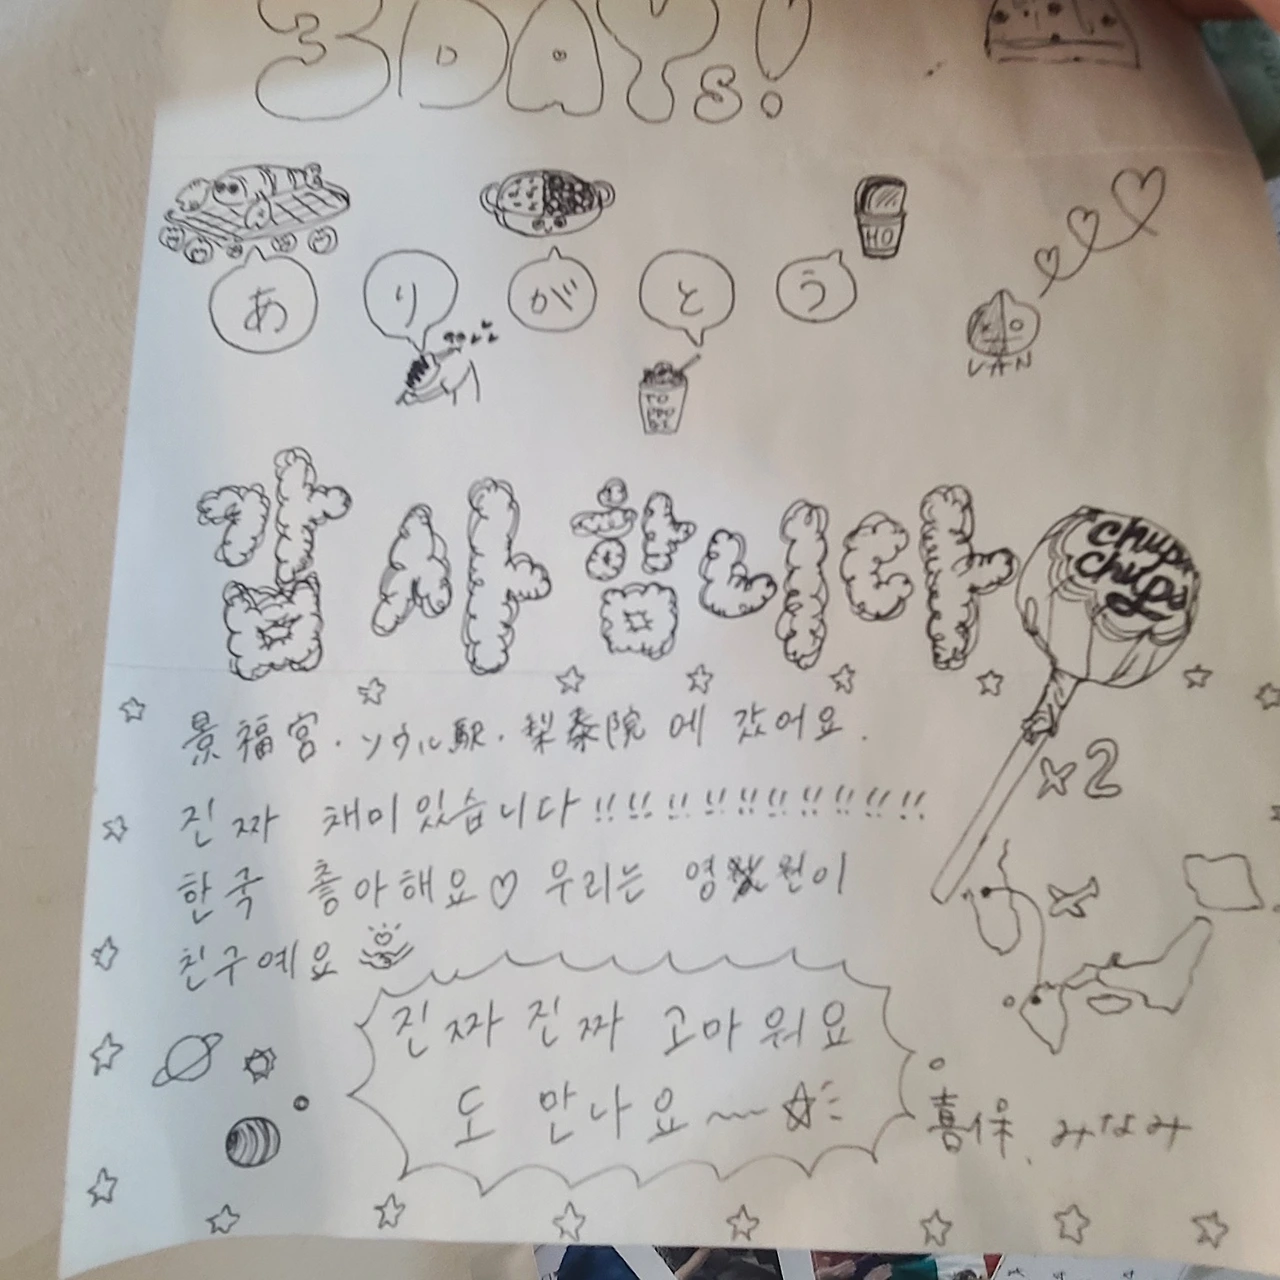 3 DAYs!
HO
あ り が と う
VAN
TO
PPO
감사합니다
chupa
chups
×2
景福宮・ソウル駅・梨泰院 에 갔어요.
진짜 채미있습니다!!!!!!!!!!!!!!!!!!!!
한국 좋아해요♡ 우리는 영원이
친구예요
진짜 진짜 고마워요
도 만나요~~☆
喜保、みなみ